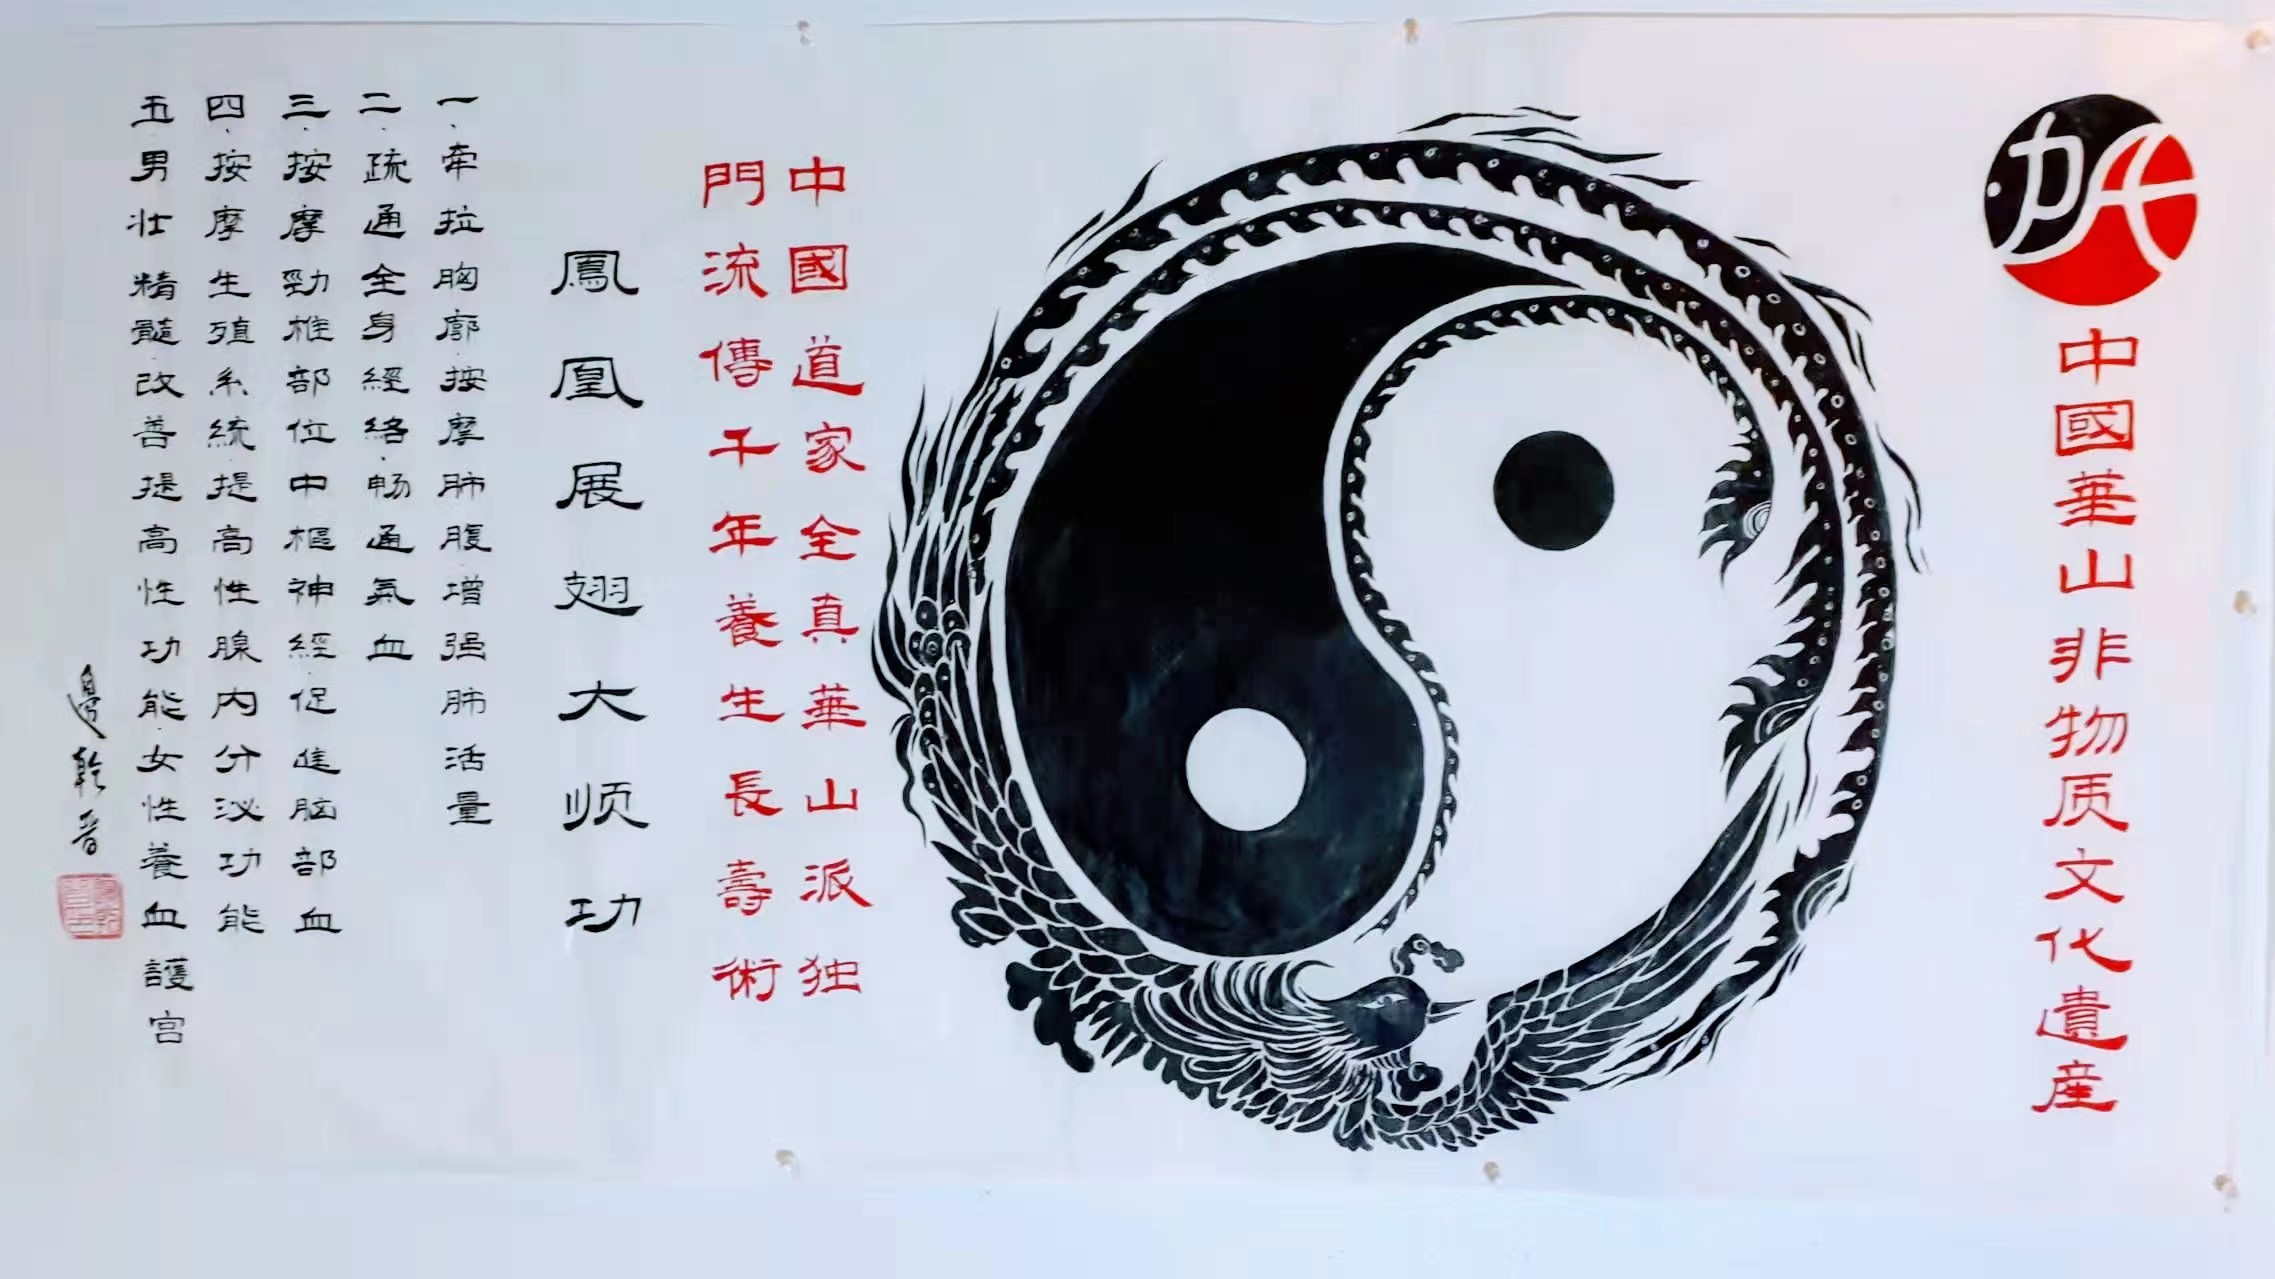 中國華山非物质文化遺産
中國道家全真華山派独
門流傳千年養生長壽術
鳳凰展翅大顺功
一、牵拉胸廓、按摩肺腹、增强肺活量
二、疏通全身經絡、畅通氣血
三、按摩勁椎部位中樞神經、促進脑部血
四、按摩生殖系統、提高性腺内分泌功能
五、男壮精髓、改善提高性功能、女性養血護宫
邊乾晋